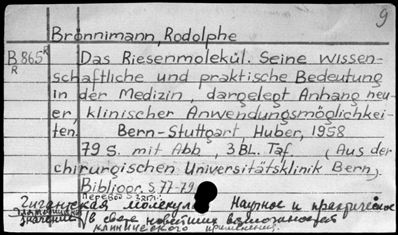 9
Bronnimann, Rodolphe
B 865 R Das Riesenmolekül. Seine wissen-
R schaftliche und praktische Bedeutung
in der Medizin, dargelegt Anhang neu-
er, klinischer Anwendungsmöglichkei-
ten. Bern-Stuttgart, Huber, 1958
79 S. mit Abb, 3 BL. Taf (Aus der
chirurgischen Universitätsklinik Bern)
Bibliogr. S 77-79
Перевод загл.:
Гигантская молекула. Научное и практическое
значение /в свете новейших возможностей
клинического применения.